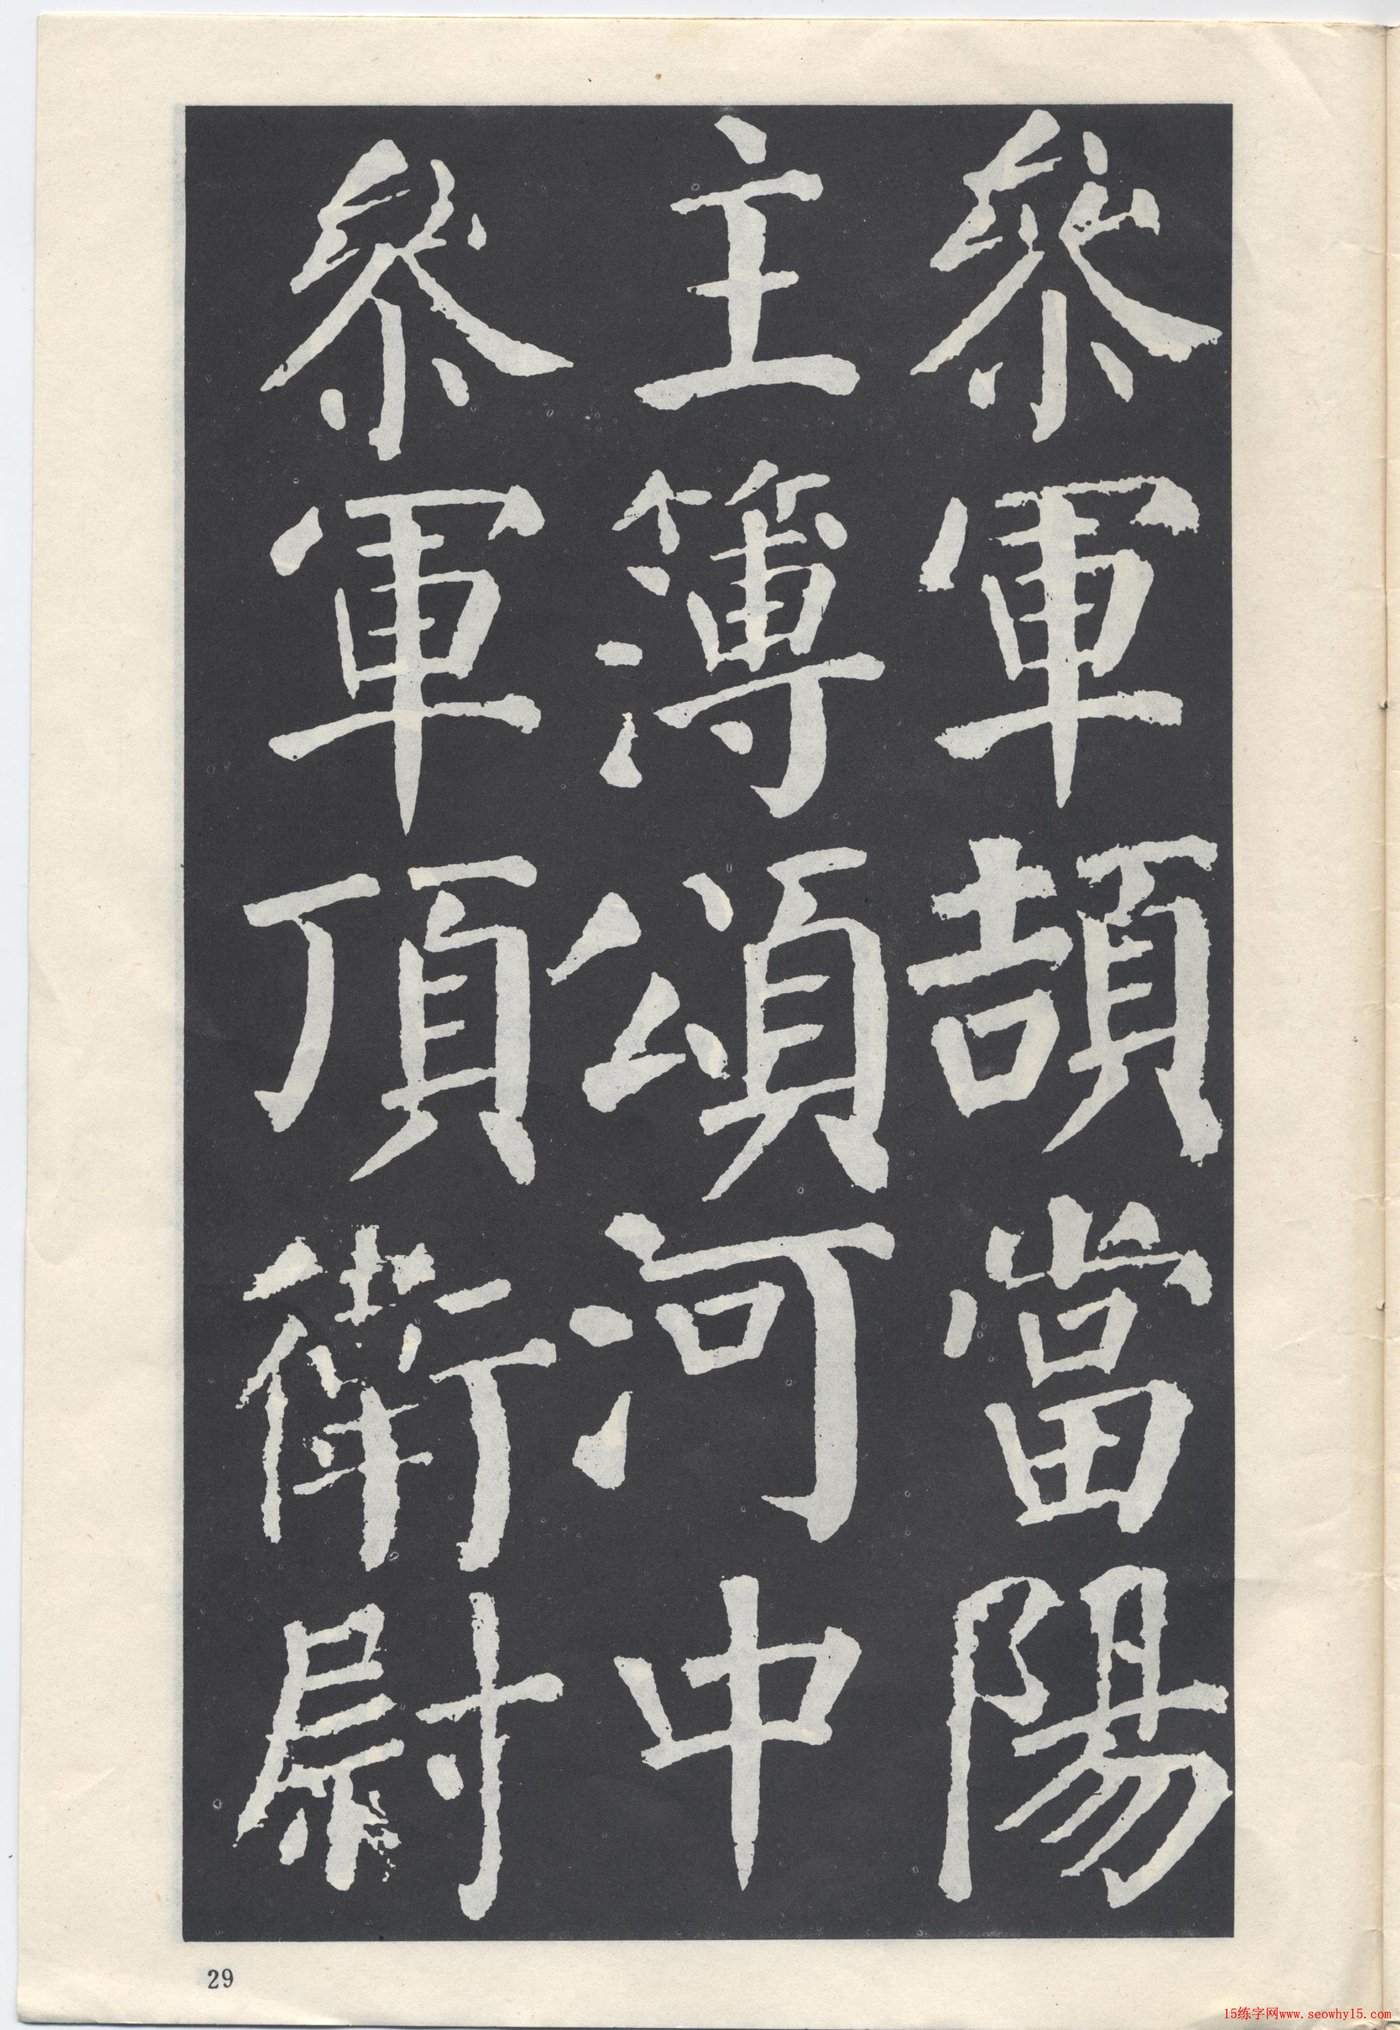 參軍頡當陽
主簿頌河中
參軍頂衛尉
29
15练字网www.seowhy15.com